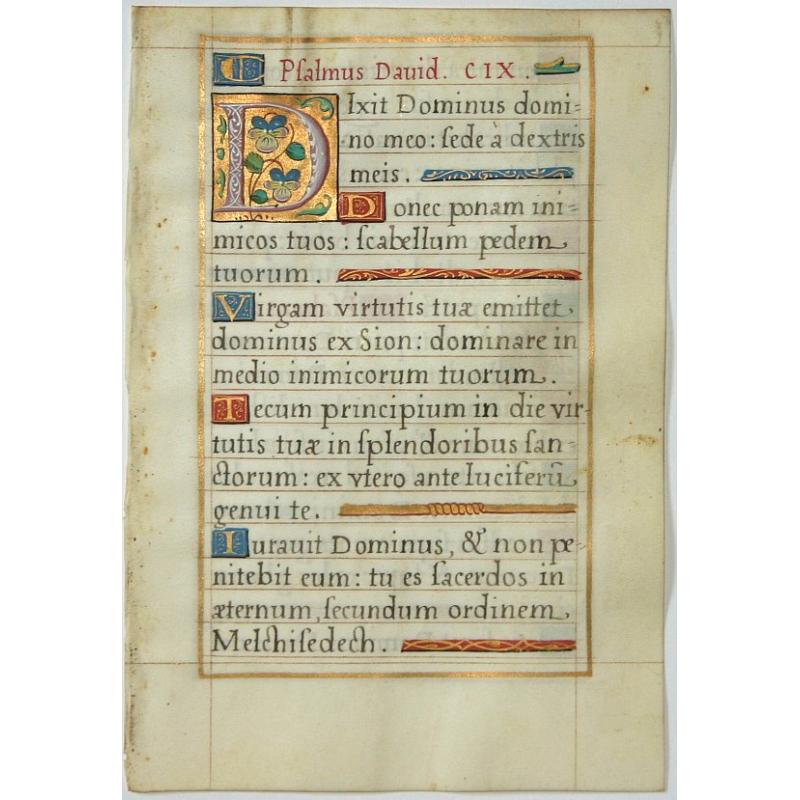 Psalmus Dauid. CIX.
DIxit Dominus domi=
no meo: sede à dextris
meis.
Donec ponam ini=
micos tuos: scabellum pedem
tuorum.
Virgam virtutis tuæ emittet
dominus ex Sion: dominare in
medio inimicorum tuorum.
Tecum principium in die vir-
tutis tuæ in splendoribus san=
ctorum: ex vtero ante luciferū
genui te.
Iurauit Dominus, & non pe=
nitebit eum: tu es sacerdos in
æternum, secundum ordinem
Melchisedech.